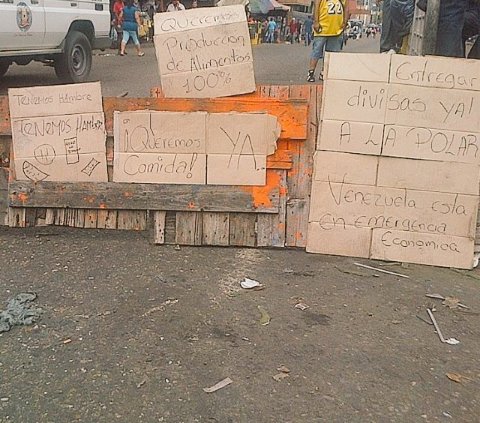 Queremos
Producción
de Alimentos
100%
Tenemos Hambre
Tenemos Hambre
¡Queremos
Comida!
YA
Entregar
divisas YA!
A LA POLAR
Venezuela esta
en emergencia
Economica